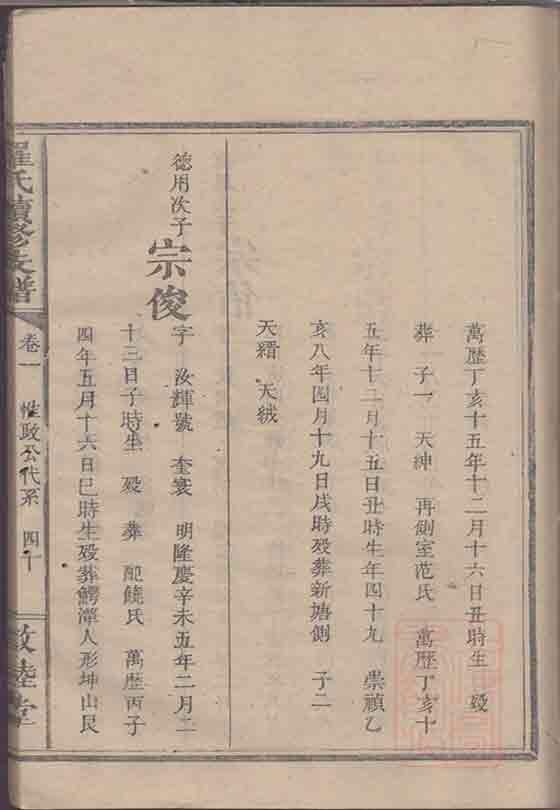 萬歷丁亥十五年十二月十六日丑時生 歿
葬 子一 天紳 再側室范氏 萬歷丁亥十
五年十二月十五日丑時生年四十九 崇禎乙
亥八年四月十九日戌時歿葬新塘側 子二
天縉 天絨
德用次子 宗俊 字 汝輝號 奎寰 明隆慶辛未五年二月二
十三日子時生 歿 葬 配饒氏 萬歷丙子
四年五月十六日巳時生歿葬鰐潭人形坤山艮
羅氏續修支譜 卷一 惟政公代系 四十 敦睦堂